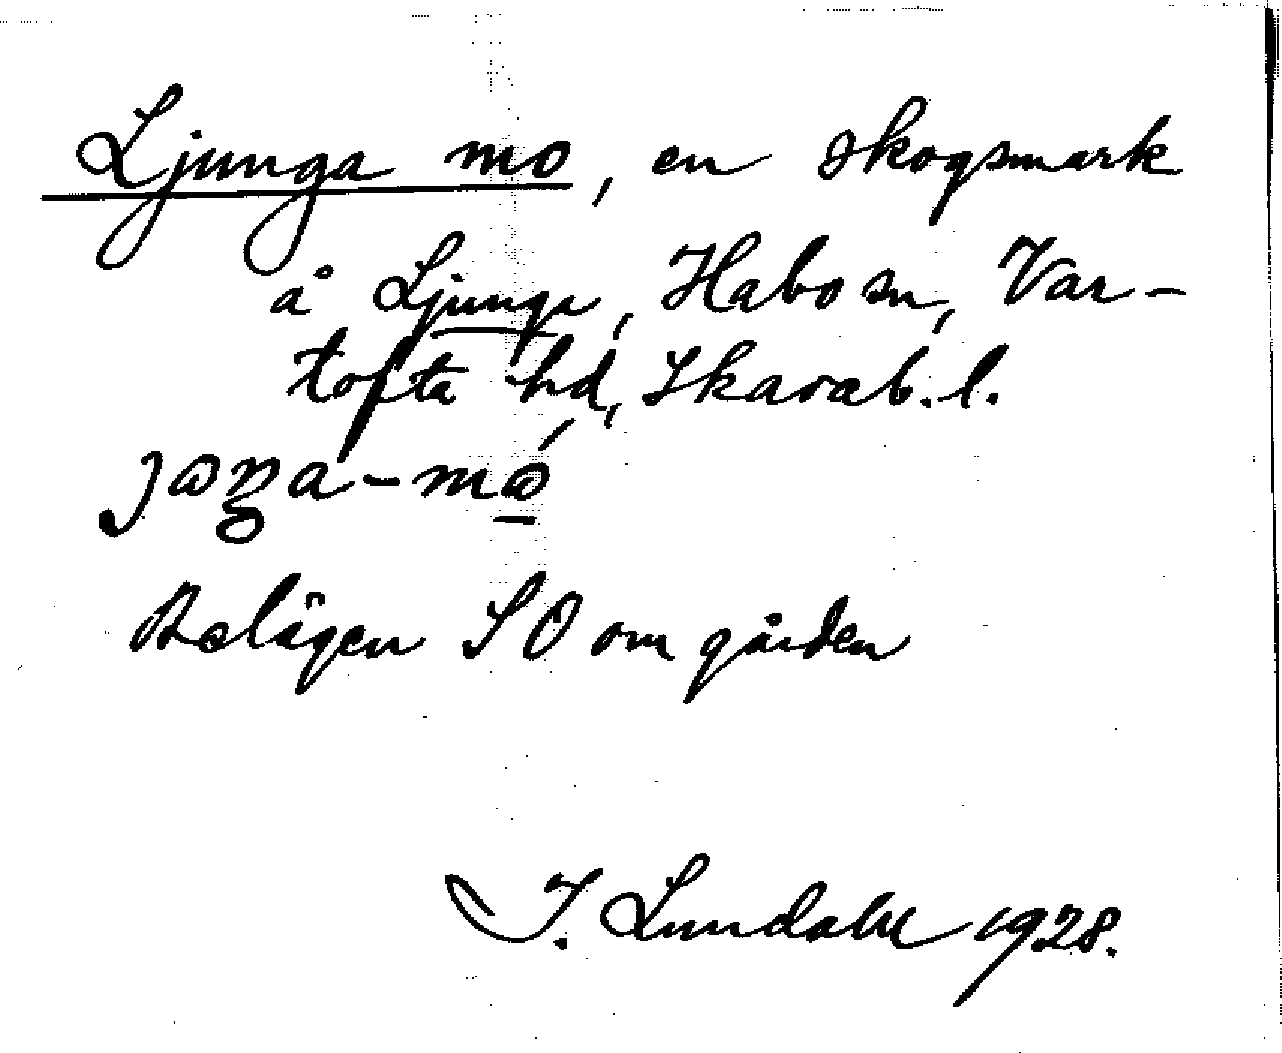 Ljunga mo, en skogsmark
å Ljunga, Habo sn, Var-
tofta hd, Skarab. l.
Belägen SO om gården
I. Lundahl 1928.